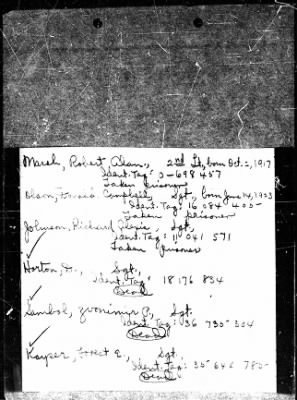 Marsh, Robert Alan, 2nd Lt., born Oct. 2, 1917
Ident. Tag: O-698 457
Taken prisoner
Olson, Campbell, Sgt., born Jan. 14, 1923
Ident. Tag: 16 084 405
Taken prisoner
Johnson, Richard, Sgt,
Ident. Tag: 11 041 571
Taken prisoner
Horton, D., Sgt.
Ident. Tag: 18 176 834
Dead
Zvonimyr P., Sgt.
Ident. Tag: 36
Dead
Kayser, E., Sgt.,
Ident. Tag: 35
Dead